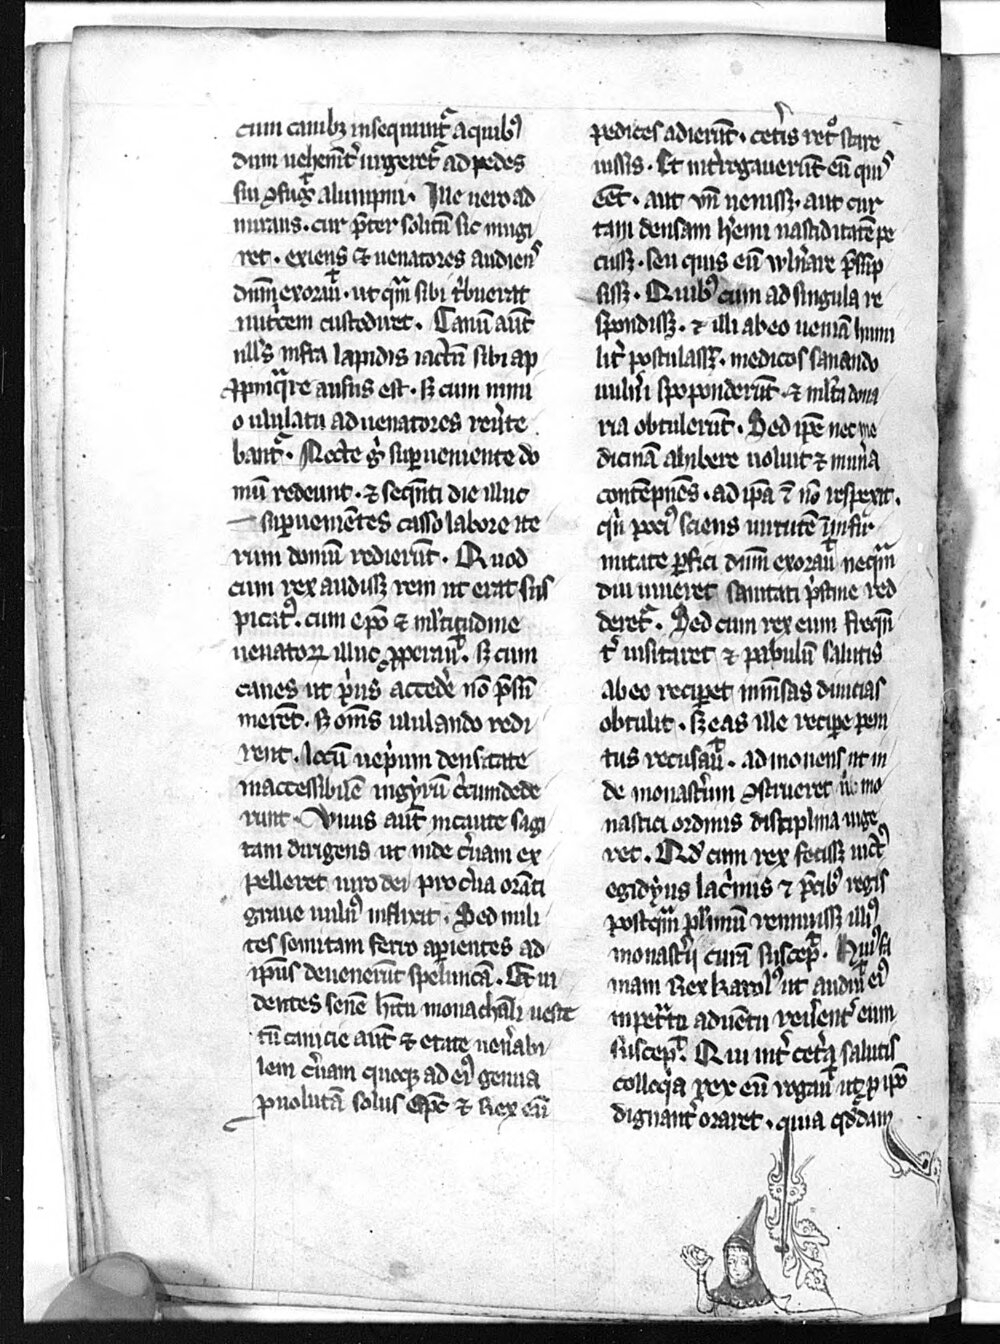 cum canibꝫ insequunt̃ a quibꝰ
dum uehem̃t̃ urgeret̃ ad pedes
sui ꝯfug̃ alumpni. Ille uero ad
mirans. cur p̃ter solitũ sic mugi
ret. exiens ⁊ uenatores audiens
dñm exorauit. ut qm̃ sibi t̃buerat
nutricem custodiret. Canũ aũt
nllꝰs infra lapidis iactũ sibi ap
ꝓpinq̃re ausus est. Sꝫ cum nimi
o ululatu ad uenatores reũte
bant̃. Nocte g̃ superueniente do
mũ redeunt. ⁊ seq̃nti die illuc
superueniẽtes casso labore ite
rum domũ redierũt. Quod
cum rex audissꝫ rem ut erat sus
picatꝰ. cum ep̃o ⁊ ml̃titudine
uenatoꝝ illuc ꝓperauit. Sꝫ cum
canes ut prius accedẽ nõ p̃sũ
merẽt. Sꝫ om̃s ululando redi
rent. locũ uep̃ium densitate
inaccessibilẽ in gyrũ c̃cumdede
runt. Vnus aũt incaute sagi
tam dirigens ut inde c̃uam ex
pelleret uiro dei pro c̃ua orãti
graue uulnꝰ inflixit. Sed mili
tes semitam ferro aperientes ad
ip̃ius deuenerũt speluncã. Et ui
dentes senẽ h̃itu monachali ueste
tũ canicie aũt ⁊ etate uen̾abi
lem c̃uam quoqꝫ ad eiꝰ genua
ꝓuolutã solus ep̃c ⁊ Rex eũ
pedites adierũt. cet̾is ret̾o stare
iussis. Et int̾rogauerũt eũ quis
eẽt. aut vñ uenissꝫ. aut cur
tam densam h̾emi uastiditatẽ pe
cissꝫ. seu quis eũ wln̾are p̃sũp
sissꝫ. Quibꝰ cum ad singula re
spondissꝫ. ⁊ illi ab eo ueniã humi
lit̾ postulassẽt. medicos sanando
uuln̾i spoponderũt. ⁊ ml̃ta dona
ria obtulerũt. Sed ip̃e nec me
dicinã adhibere uoluit ⁊ mun̾a
contẽpnẽs. ad ip̃a ĩ nõ respexit.
q̃n pociꝰ sciens uirtutẽ ĩ infir
mitate ꝑfici dñm exorauit neq̃m
diu uiueret sanitati p̃stine red
deret̃. Sed cum rex eum freq̃n
t̾ uisitaret ⁊ pabulũ salutis
ab eo reciperet inm̃sas diuicias
obtulit. Sꝫ eas ille recipe peni
tus recusauit. admonens ut in
de monast̾ium ꝯstrueret ubi mo
nastici ordinis disciplina uige
ret. Qd̃ cum rex fecissꝫ uictꝰ
egidyus lac̾mis ⁊ p̃cibꝰ regis
postq̃m pl̾imũ rennuissꝫ illiꝰ
monast̾ij curã suscepit. Huiꝰ fa
mam Rex karolꝰ ut audiuit eiꝰ
inpet̾to aduẽtu reu̾ent̾ eum
suscepit. Qui int̾ cet̾a salutis
colloq̃ia rex eũ rogauit ut ꝓ ipõ
dignant̾ oraret. quia qd̃dam